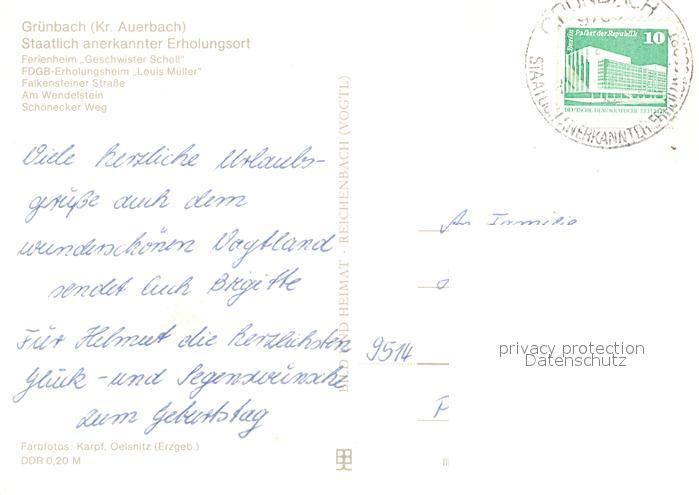 Grünbach (Kr. Auerbach)
Staatlich anerkannter Erholungsort
Ferienheim „Geschwister Scholl"
FDGB-Erholungsheim „Louis Müller"
Falkensteiner Straße
Am Wendelstein
Schönecker Weg
GRÜNBACH
STAATLICH ANERKANNTER ERHOLUNGSORT
Berlin Palast der Republik
10
DEUTSCHE DEMOKRATISCHE REPUBLIK
Viele herzliche Urlaubs-
grüße auch dem
wunderschönen Vogtland
sendet Euch Brigitte
Für Helmut die herzlichsten
Glück - und Segenswünsche
zum Geburtstag
BILD UND HEIMAT · REICHENBACH (VOGTL)
An Familie
9514
privacy protection
Datenschutz
Farbfotos: Karpf, Oelsnitz (Erzgeb.)
DDR 0,20 M